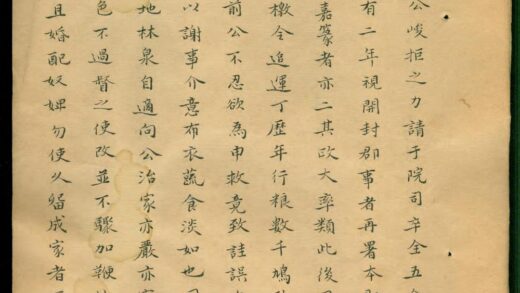 公峻拒之力請于院司卒全五
有二年視開封郡事者再署本
嘉篆者亦二其政大率類此後
檄令追運丁歷年行粮數千鳩
前公不忍欲為申救竟致詿誤
以謝事介意布衣蔬食淡如也
地林泉自適向公治家亦嚴亦
色不過督之使改並不驟加鞭
且婚配奴婢勿使久錮成家者